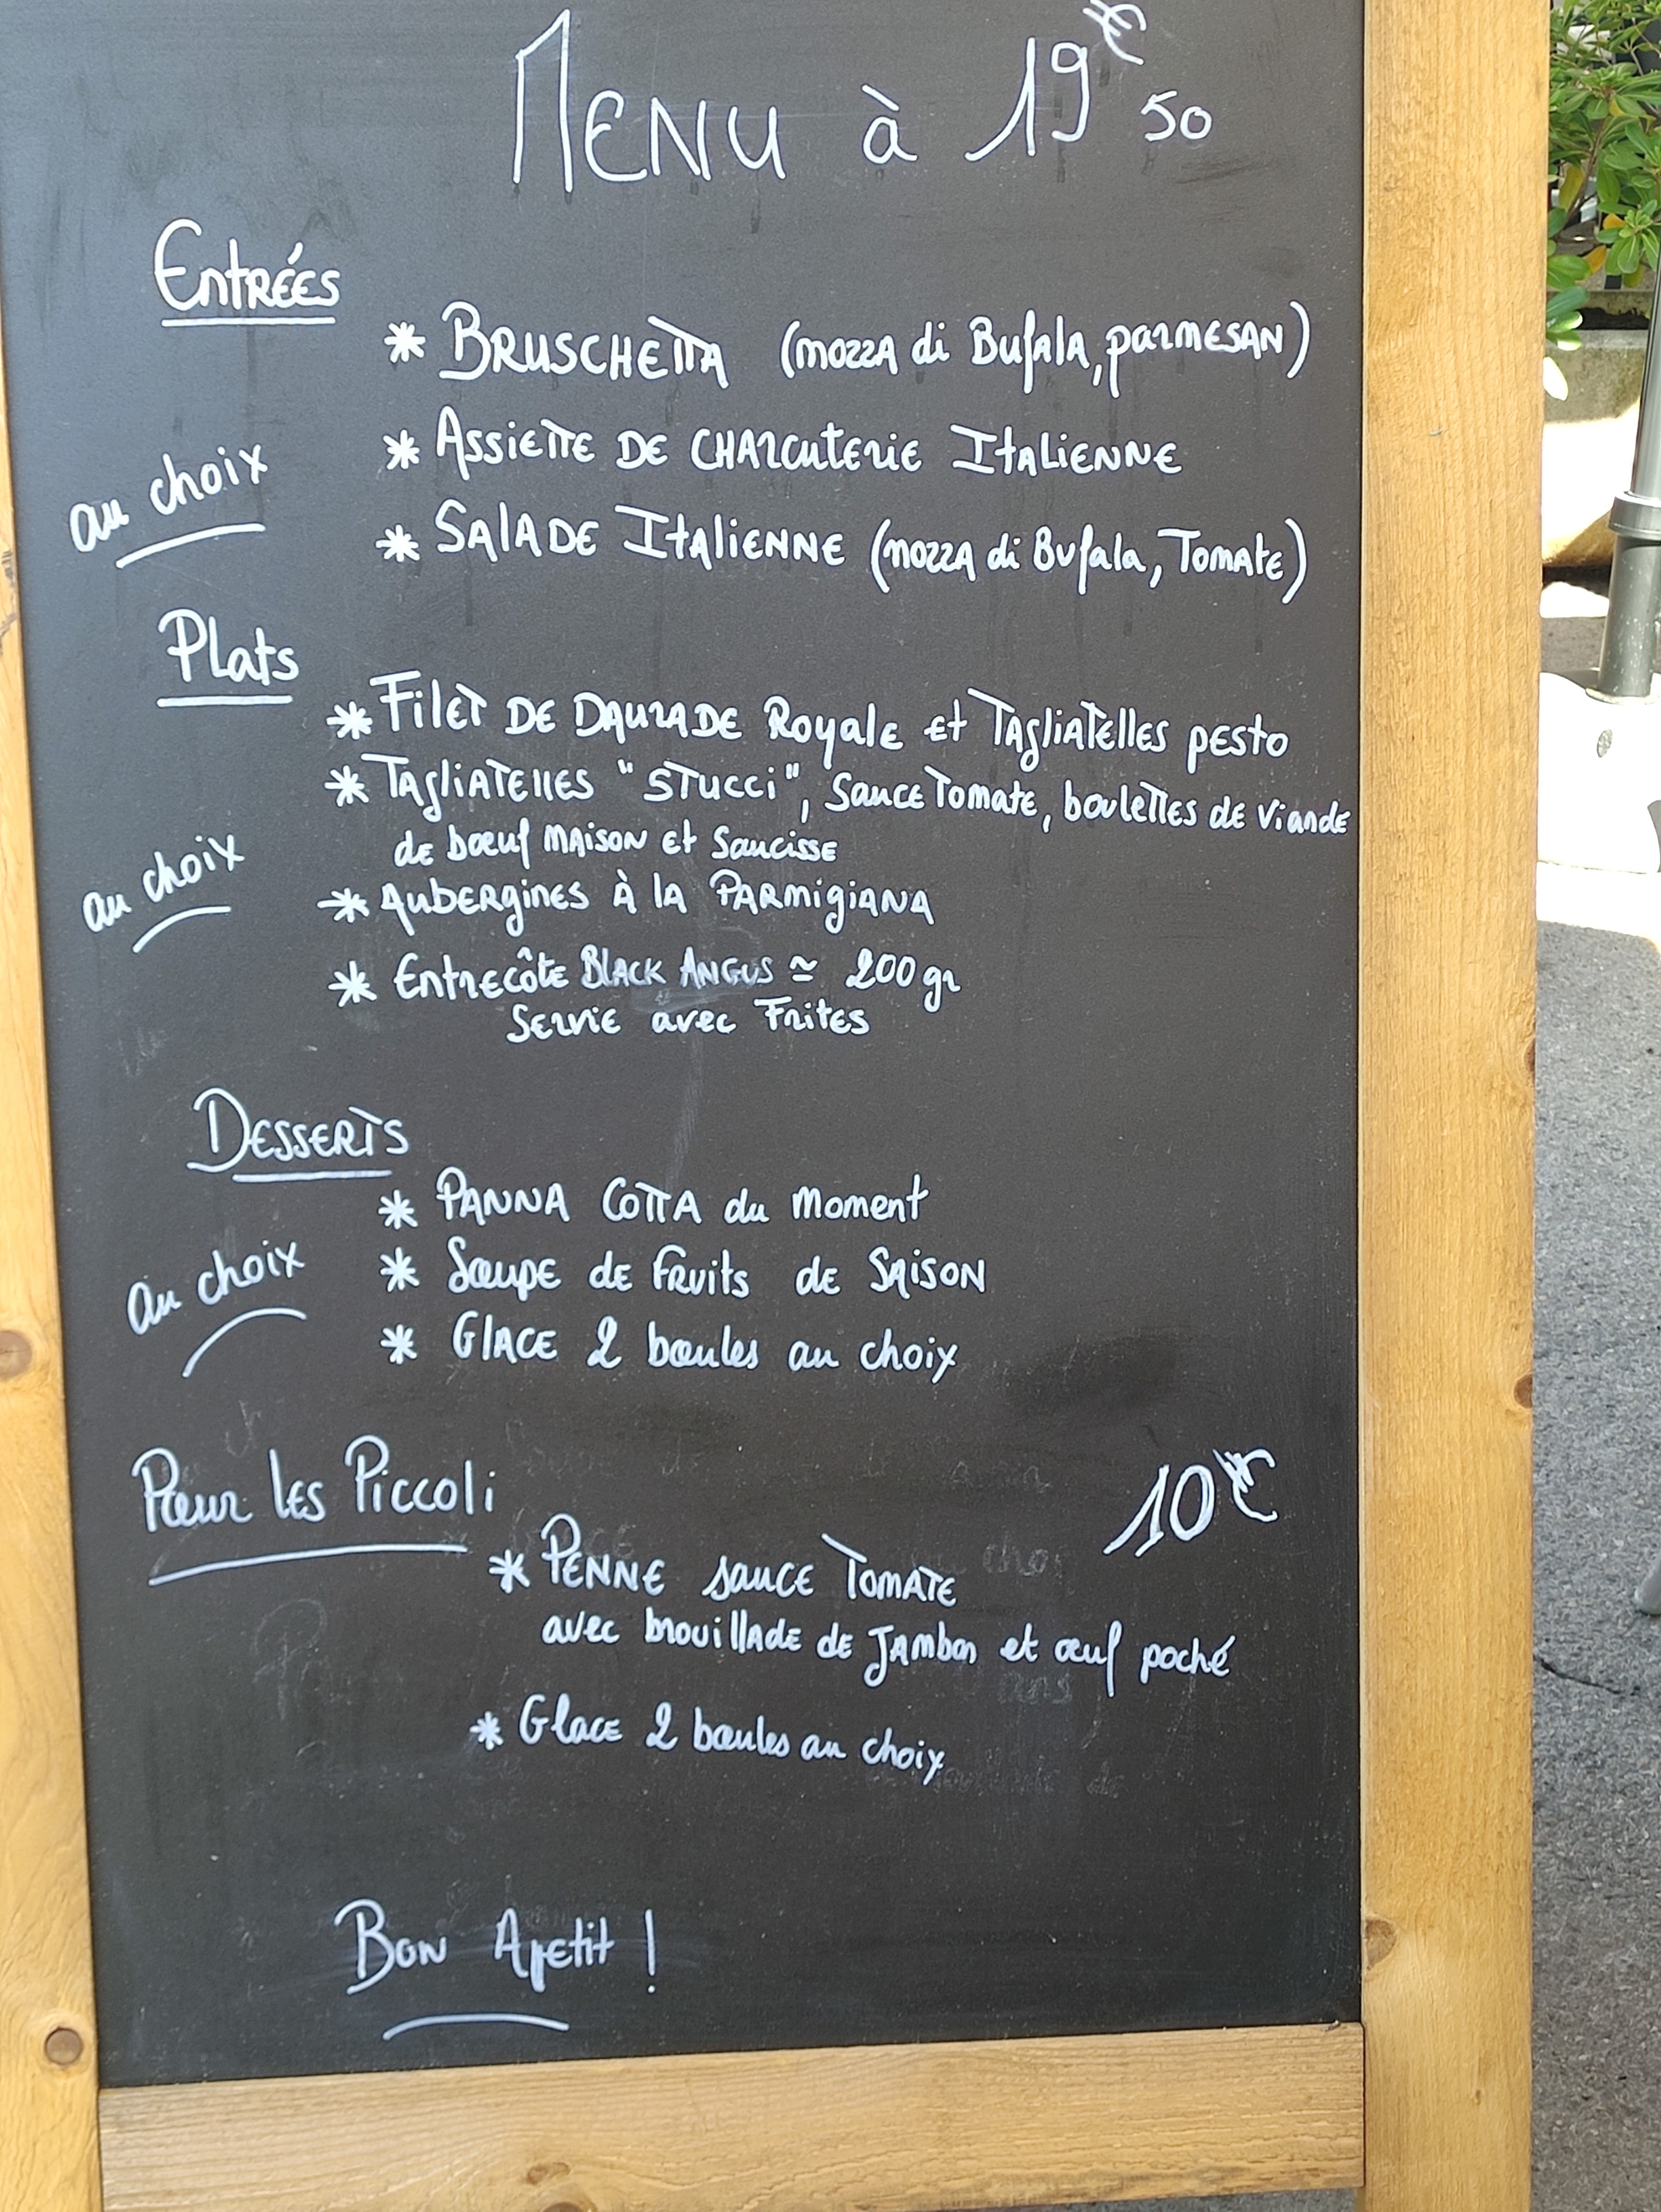 MENU à 19€50
Entrées
* BRUSCHETTA (mozza di Bufala, parmesan)
* Assiette de charcuterie Italienne
au choix
* Salade Italienne (mozza di Bufala, Tomate)
Plats
* Filet de Daurade Royale et Tagliatelles pesto
* Tagliatelles "Stucci", Sauce Tomate, boulettes de viande
de bœuf maison et Saucisse
au choix
* Aubergines à la Parmigiana
* Entrecôte Black Angus ≃ 200 gr
Servie avec Frites
Desserts
* Panna Cotta du moment
au choix
* Soupe de fruits de Saison
* Glace 2 boules au choix
Pour les Piccoli 10€
* Penne sauce Tomate
avec brouillade de Jambon et œuf poché
* Glace 2 boules au choix
Bon Apetit !